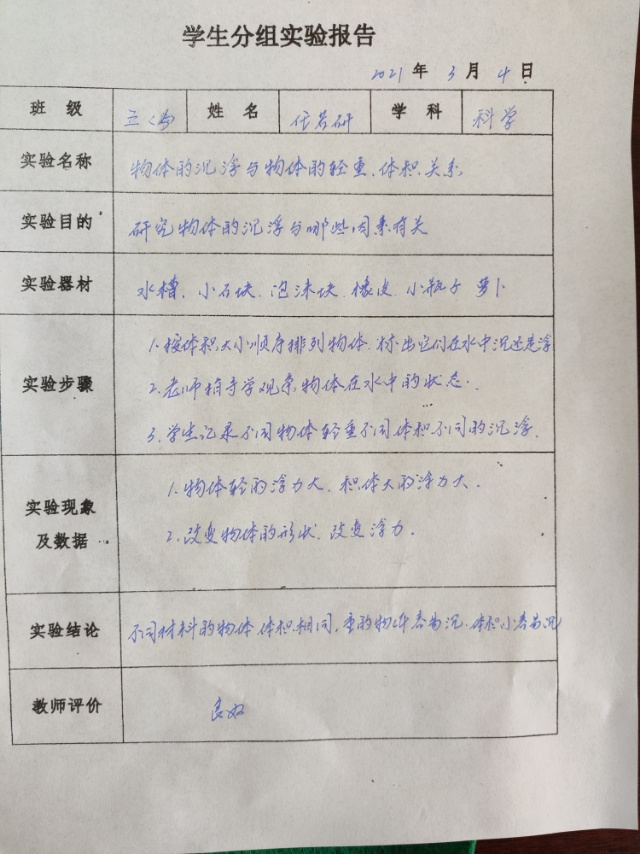 学生分组实验报告
2021 年 3 月 4 日
班 级 姓 名 任若研 学 科 科学
实验名称 物体的沉浮与物体的轻重、体积关系
实验目的 研究物体的沉浮与哪些因素有关
实验器材 水槽、小石块、泡沫块、橡皮、小瓶子 萝卜
1.按体积大小顺序排列物体、标出它们在水中沉还是浮
实验步骤 2.老师指导学观察物体在水中的状态.
3.学生记录不同物体轻重不同体积不同的沉浮.
实验现象 1.物体轻的浮力大、积体大的浮力大.
及数据 2.改变物体的形状,改变浮力.
实验结论 不同材料的物体体积相同,重的物体容易沉.体积小容易沉
教师评价 良好